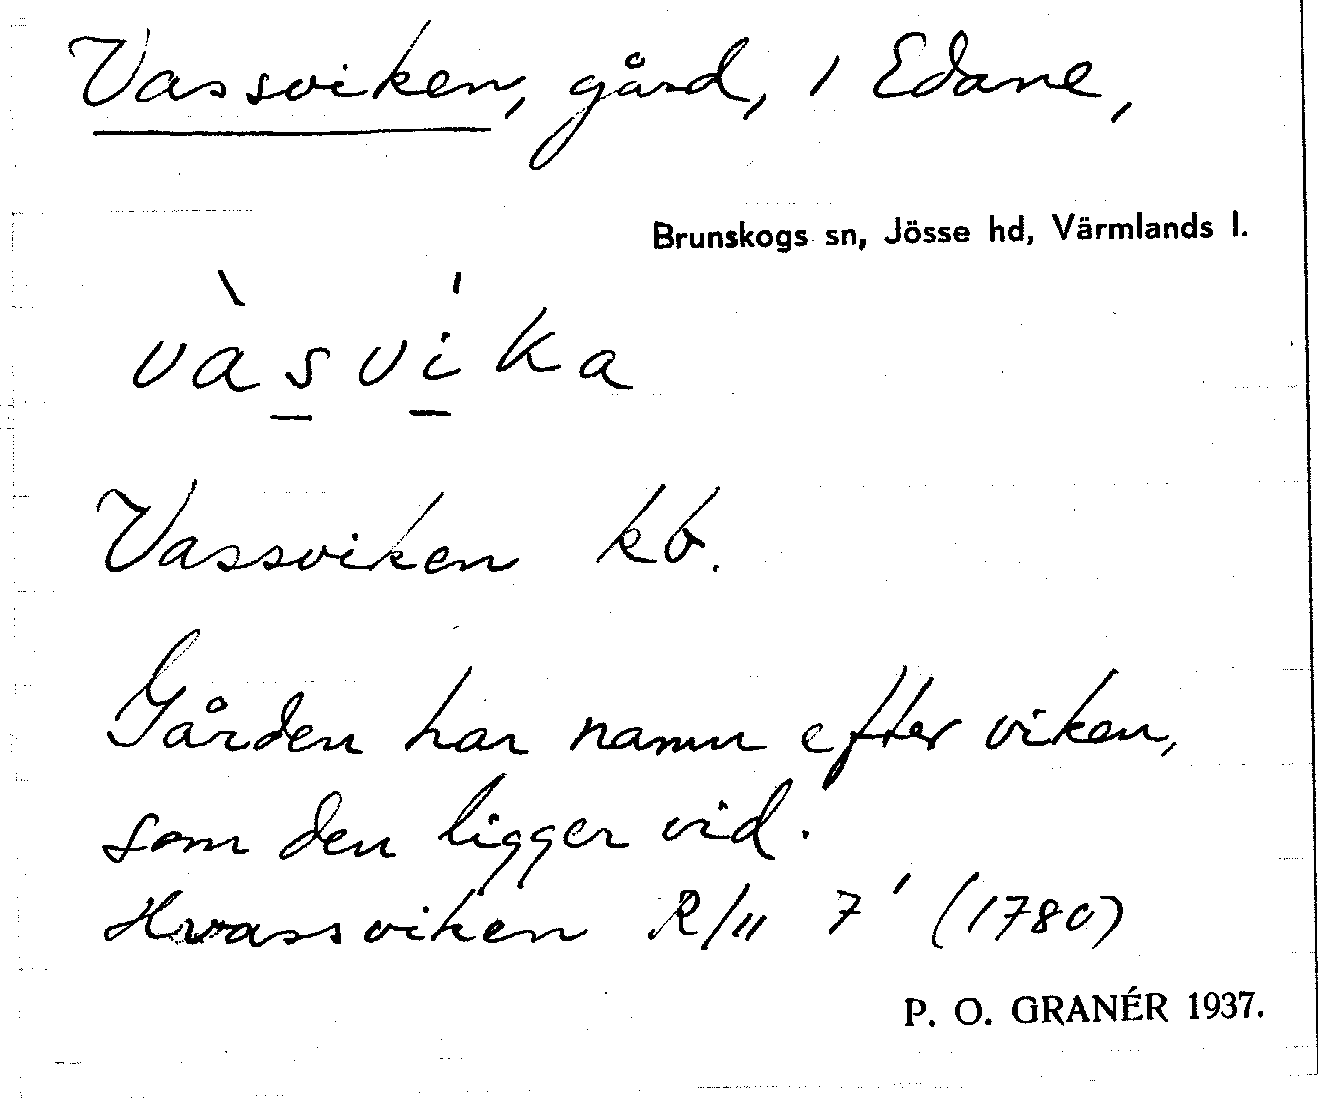 Vassviken, gård, i Edane,
Brunskogs sn, Jösse hd, Värmlands l.
vàsvíka
Vassviken kb.
Gården har namn efter viken,
som den ligger vid.
Hvassviken R/11 7' (1780)
P. O. GRANÉR 1937.